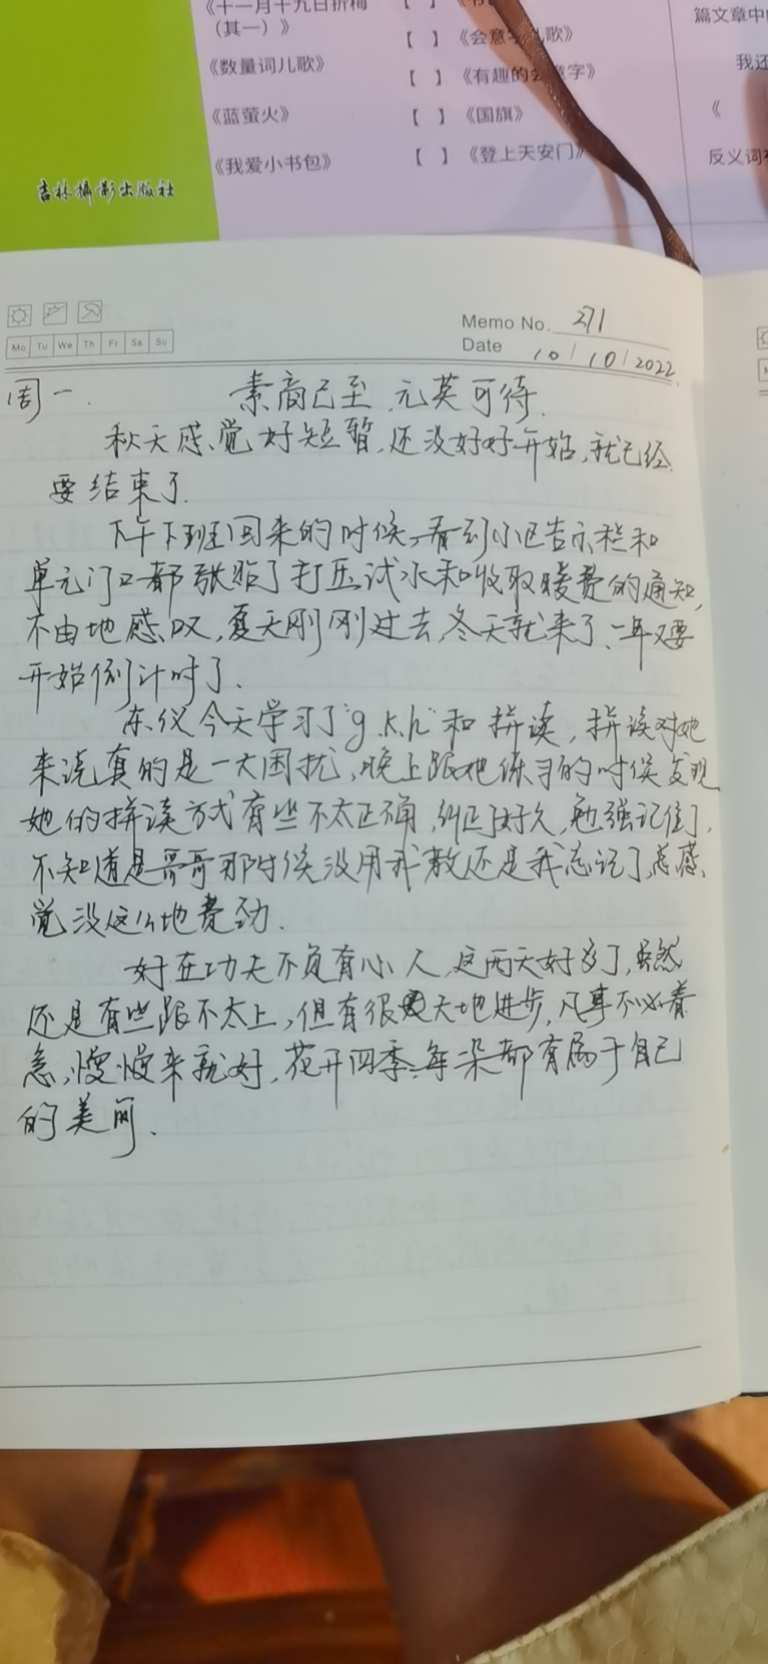 《十一月十九日折梅
（其一）》
《数量词儿歌》
《蓝萤火》
《我爱小书包》
【 】
【 】《会意字儿歌》
【 】《有趣的会意字》
【 】《国旗》
【 】《登上天安门》
篇文章中
我还
《
反义词
吉林摄影出版社
Mo Tu We Th Fr Sa Su
Memo No. 271
Date 10/10/2022.
周一. 素商已至,元英可待.
秋天感觉好短暂,还没好好开始,就已经
要结束了.
下午下班回来的时候,看到小区告示栏和
单元门口都张贴了打压试水和收取暖费的通知,
不由地感叹,夏天刚刚过去,冬天就来了、一年又要
开始倒计时了.
东仪今天学习了"g.k.h"和拼读,拼读对她
来说真的是一大困扰,晚上跟她练习的时候发现
她的拼读方式有些不太正确,纠正了好久,勉强记住了,
不知道是哥哥那时候没用我教还是我忘记了,总感
觉没这么地费劲.
好在功夫不负有心人,这两天好多了,虽然
还是有些跟不太上,但有很大地进步,凡事不必着
急,慢慢来就好,花开四季,每朵都有属于自己
的美丽.